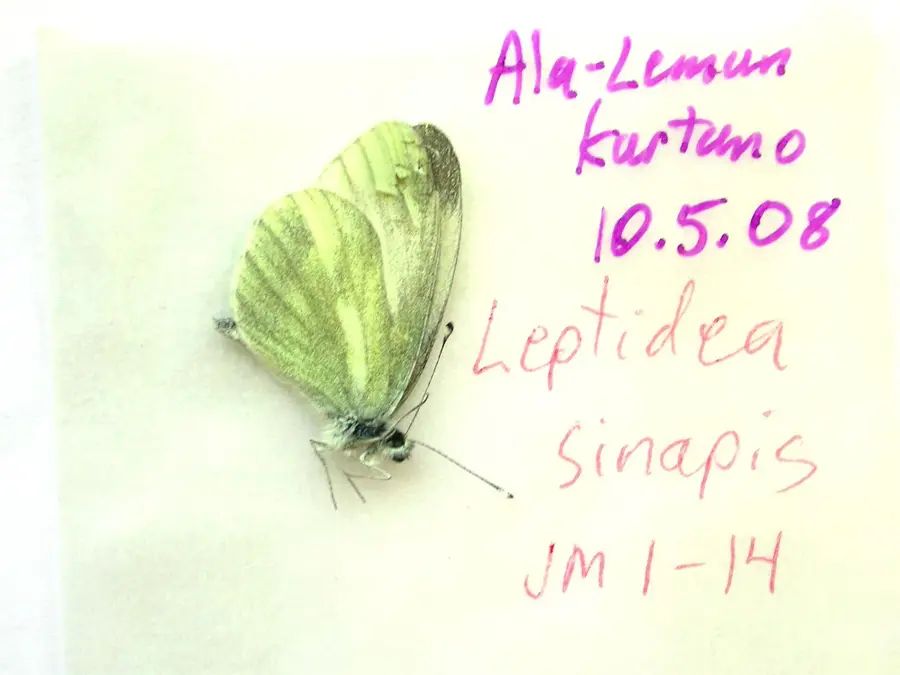 Ala-Lemun
kartano
10.5.08
Leptidea
sinapis
JM 1-14